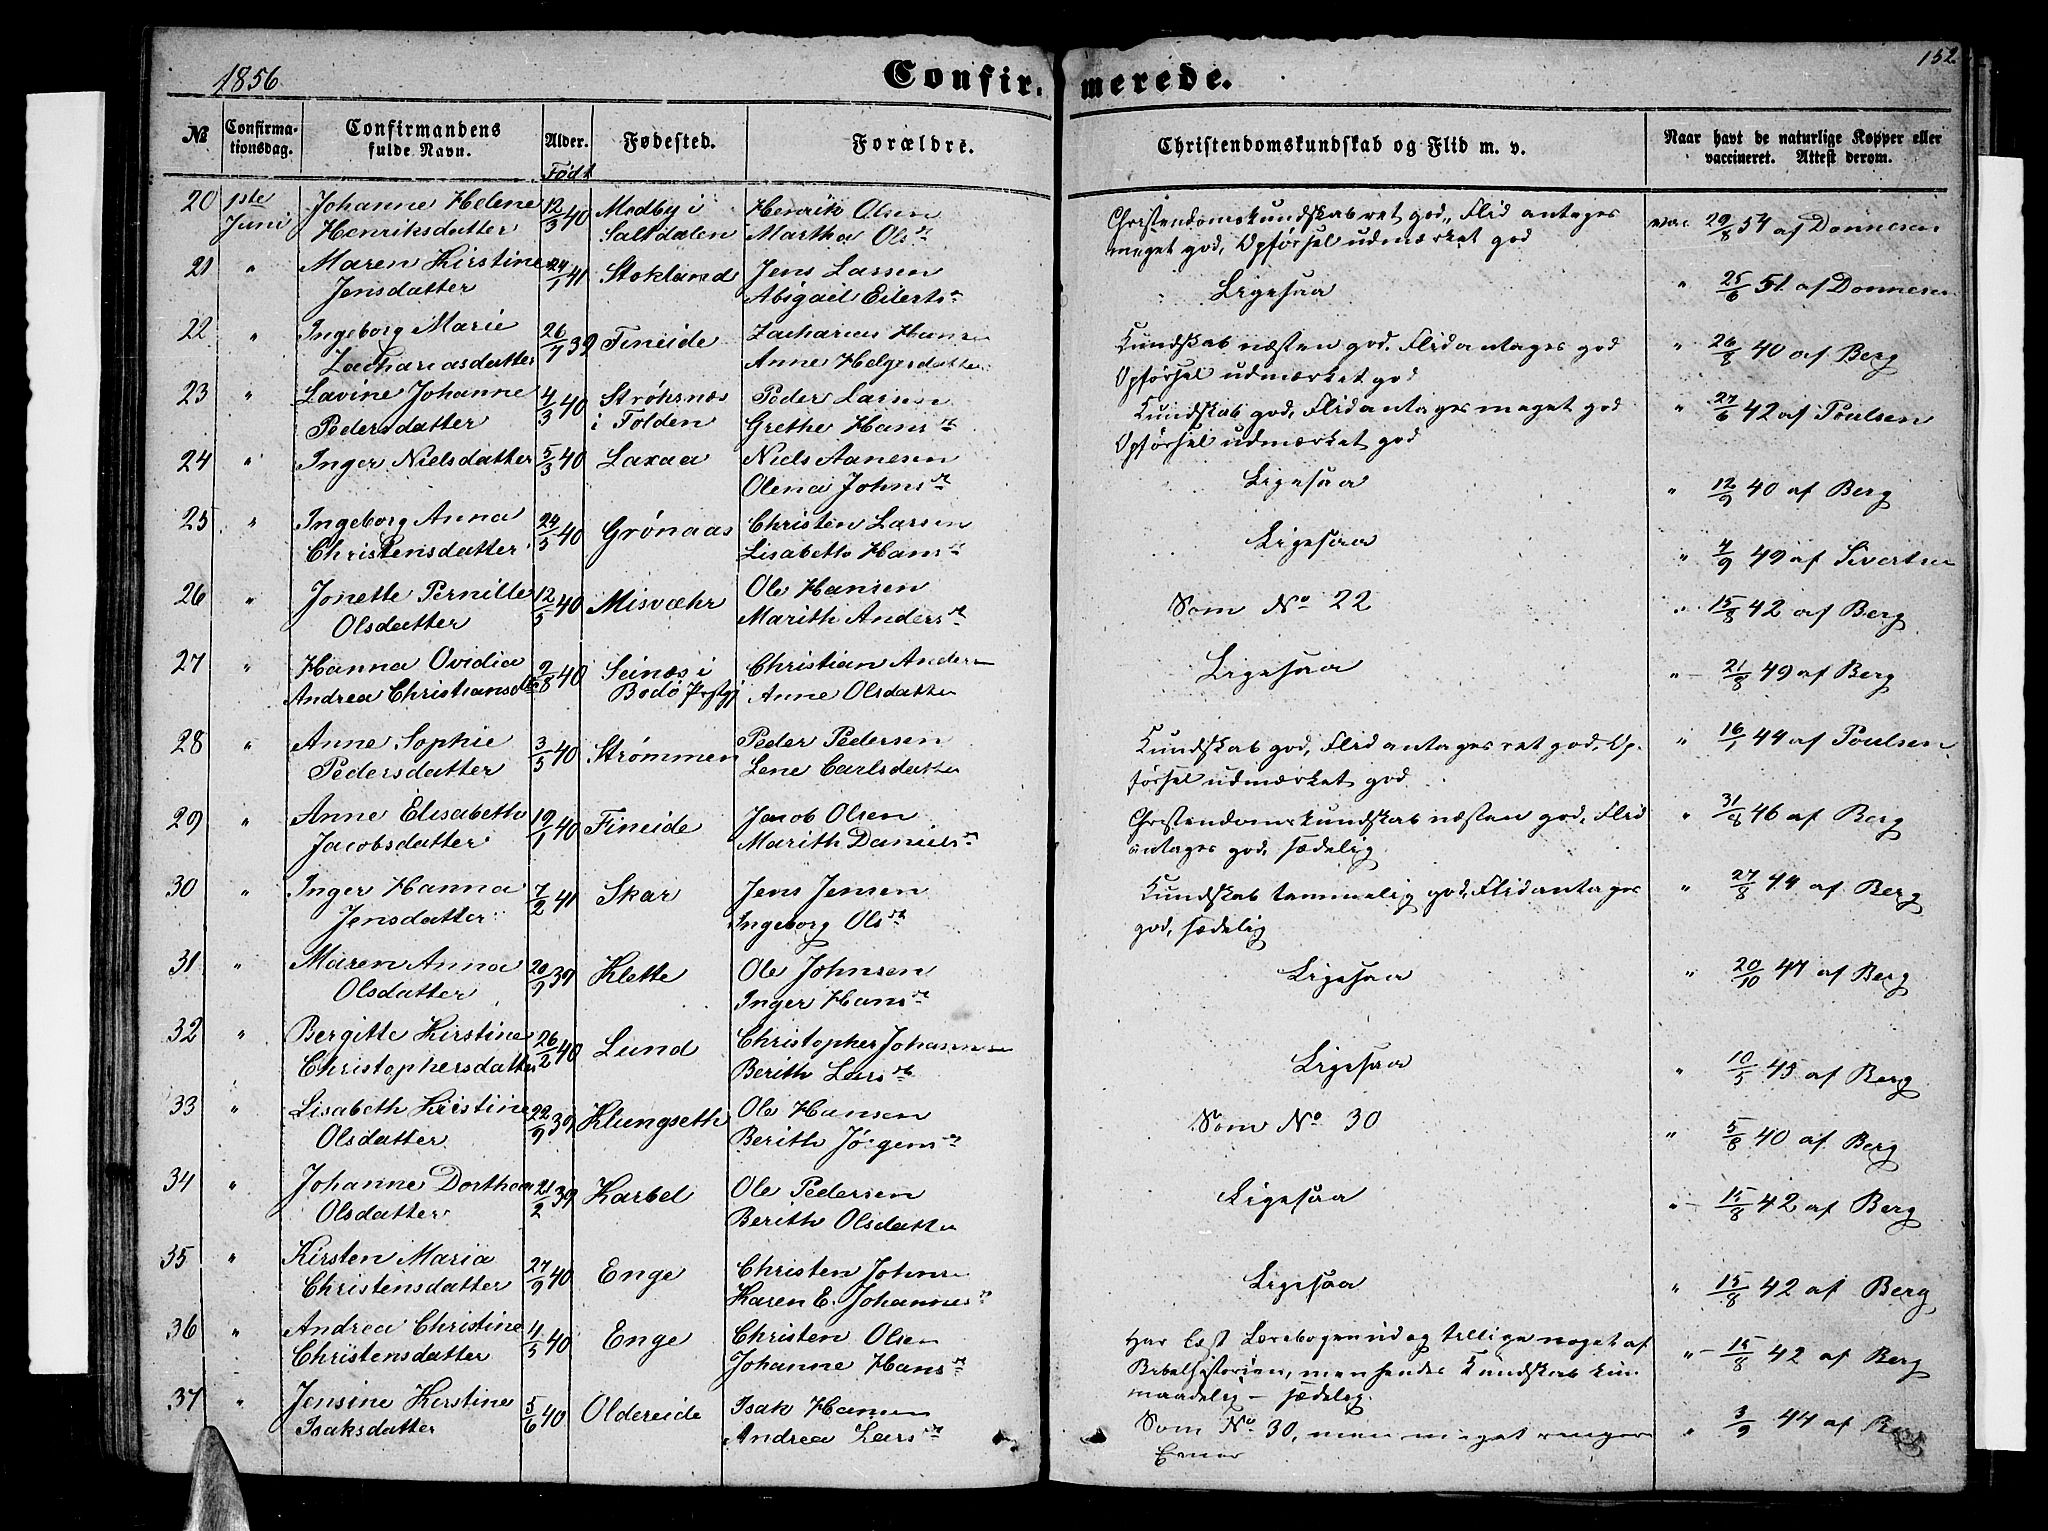 1856
152
Confir- merede.
№
Confirma-
tionsdag.
Confirmandens
fulde Navn.
Alder.
Født
Fødested.
Forældre.
Christendomskundskab og Flid m. v.
Naar havt de naturlige Kopper eller
vaccineret. Attest derom.
20 1ste Juni Johanne Helene 12/3 40 Medby i Henrik Olsen Christendomskundskab ret god, Flid antages vac 29/8 54 af Donnesen
Henriksdatter Saltdalen Martha Olsdt meget god, Opførsel udmærket god
21 " Maren Kirstine 24/1 41 Stokland Jens Larsen Ligesaa " 25/6 51 af Donnesen
Jensdatter Abigael Eilertsdt
22 " Ingeborg Marie 26/7 39 Fineide Zacharias Hansen Kundskab næsten god, Flid antages god " 26/8 40 af Berg
Zachariasdatter Anne Helgesdatter Opførsel udmærket god
23 " Lavine Johanne 4/3 40 Strøhsnæs Peder Larsen Kundskab god, Flid antages meget god " 27/6 42 af Poulsen
Pedersdatter i Folden Grethe Hansdt Opførsel udmærket god
24 " Inger Nielsdatter 5/3 40 Laxaa Niels Aanesen Ligesaa " 12/9 40 af Berg
Olena Johnsdt
25 " Ingeborg Anna 24/5 40 Grønaas Christen Larsen Ligesaa " 4/9 49 af Sivertsen
Christensdatter Lisabeth Hansdt
26 " Jonette Pernille 12/5 40 Misvæhr Ole Hansen Som No 22 " 15/8 42 af Berg
Olsdatter Marith Andersdt
27 " Hanna Ovidia 2/8 40 Seinæs i Christian Andersen Ligesaa " 21/8 49 af Berg
Andrea Christiansdtr Bodø Prstgj Anne Olsdatter
28 " Anne Sophie 3/5 40 Strømmen Peder Pedersen Kundskab god, Flid antages ret god, Op- " 16/1 44 af Poulsen
Pedersdatter Lene Carlsdatter førsel udmærket god
29 " Anne Elisabeth 19/1 40 Fineide Jacob Olsen Christendomskundskab næsten god, Flid " 31/8 46 af Berg
Jacobsdatter Marith Danielsdt antages god, sædelig
30 " Inger Hanna 7/2 41 Skar Jens Jensen Kundskab temmelig god, Flid antages " 27/8 44 af Berg
Jensdatter Ingeborg Olsdt god, sædelig
31 " Maren Anna 20/9 39 Klette Ole Johnsen Ligesaa " 20/10 47 af Berg
Olsdatter Inger Hansdt
32 " Bergitte Kirstine 26/2 40 Lund Christopher Johannsen Ligesaa " 10/5 45 af Berg
Christophersdatter Berith Larsdt
33 " Lisabeth Kirstine 22/9 39 Klungseth Ole Hansen Som No 30 " 5/8 40 af Berg
Olsdatter Berith Jørgensdt
34 " Johanne Dorthea 21/2 39 Karbøl Ole Pedersen Ligesaa " 15/8 42 af Berg
Olsdatter Berith Olsdatter
35 " Kirsten Maria 27/9 40 Enge Christen Johnsen Ligesaa " 15/8 42 af Berg
Christensdatter Karen E. Johannesdt
36 " Andrea Christine 4/5 40 Enge Christen Olsen Har læst Lærebogen ud og tillige noget af " 15/8 42 af Berg
Christensdatter Johanne Hansdt Bibelhistorien, men hendes Kundskab kun
maadelig – sædelig.
37 " Jensine Kirstine 5/6 40 Oldereide Isak Hansen Som No 30, men meget ringe " 3/9 44 af Berg
Isaksdatter Andrea Larsdt Evner